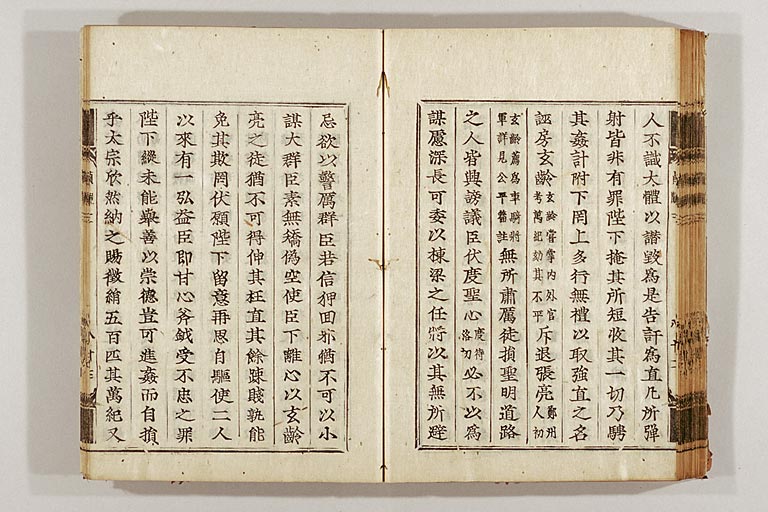 人不識大體以譖毀爲是告訐爲直凡所彈
射皆非有罪陛下掩其所短收其一切乃騁
其姦計附下罔上多行無禮以取強直之名
誣房玄齡玄齡嘗掌內外官考萬紀劾其不平斥退張亮鄭州人初
玄齡薦爲車騎將軍詳見公平舊註無所肅厲徒損聖明道路
之人皆興謗議臣伏度聖心度待洛切必不以爲
謀慮深長可委以棟梁之任將以其無所避
忌欲以警厲群臣若信狎回邪猶不可以小
謀大群臣素無矯僞空使臣下離心以玄齡
亮之徒猶不可得伸其枉直其餘疎賤孰能
免其欺罔伏願陛下留意再思自驅使二人
以來有一弘益臣即甘心斧鉞受不忠之罪
陛下縱未能舉善以崇德豈可進姦而自損
乎太宗欣然納之賜徵絹五百匹其萬紀又